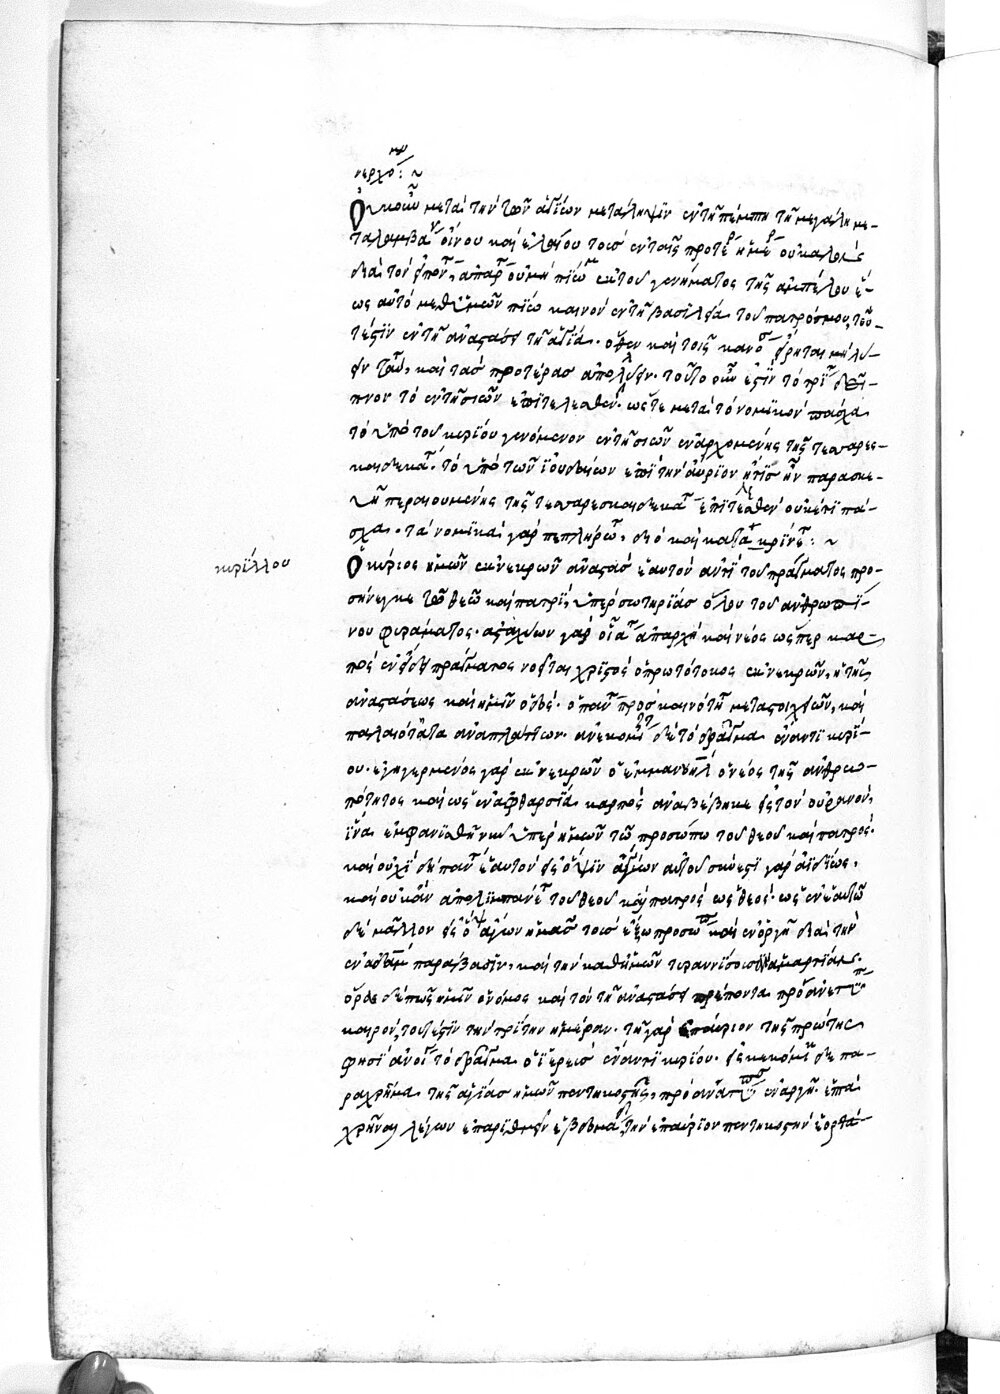 νερχομ : ~
Οὐκοῦν μετὰ τὴν τῶν ἁγίων μετάληψιν ἐν τῇ πέμπτη τῇ μεγάλη με-
ταλαμβάν οἴνου καὶ ἐλαίου τοῖσ ἐν ταῖς προτερ ἡμερ οὐ καλῶς
διὰ τὸν εἰπόντ, ἀπαρτ οὐ μὴ πίω ἐκ τοῦ γενήματος τῆς ἀμπέλου ἕ-
ως αὐτὸ μεθ ὑμῶν πίω καινὸν ἐν τῇ βασιλεία τοῦ πατρόσ μου, τοῦ-
τέστιν ἐν τῇ ἀναστάσει τῇ ἁγία. ὅθεν καὶ τοῖς κανόσ εἴρηται μὴ λύ-
ειν ταύτ, καὶ τὰσ προτέρασ ἀπολύειν. τοῦτο οὖν ἐστὶν τὸ πρὶν δεῖ-
πνον τὸ ἐν τῇ σιὼν ἐπιτελεσθέν. ὥστε μετὰ τὸ νομικὸν πάσχα
τὸ ὑπὸ τοῦ κυρίου γενόμενον ἐν τῇ σιὼν ἐναρχομένης τῆς τεσσαρες-
καιδεκάτ. τὸ ὑπὸ τῶν ἰουδαίων ἐπὶ τὴν αὔριον ἥτισ ἦν παρασκε-
υὴ περαιουμένης τῆς τεσσαρεσκαιδεκάτ ἐπιτελεσθὲν οὐκέτι πά-
σχα. τὰ νομικὰ γὰρ πεπλήρω, διὸ καὶ κατακρίνετ : ~
κυρίλλου
Ὁ κύριος ἡμῶν ἐκ νεκρῶν ἀναστὰσ ἑαυτὸν ἀντὶ τοῦ πράγματος προ-
σήνεγκε τῶ θεῶ καὶ πατρί, ὑπὲρ σωτηρίασ ὅλου τοῦ ἀνθρωπί-
νου φυράματος. ἀσταχύων γὰρ οἷα ἀπαρχὴ καὶ νέος ὥσπερ καρ-
πὸς ἐν εἴδει πράγματος νοεῖται χριστὸς ὁ πρωτότοκος ἐκ νεκρῶν, ἡ τῆς
ἀναστάσεως καὶ ἡμῖν ὁδός. ὁ πάντ πρὸσ καινότητ μεταστοιχειῶν, καὶ
παλαιότητα ἀναπλάττων. ἀνεκομίζ δὲ τὸ δράγμα ἐναντι κυρί-
ου. ἐγηγερμένος γὰρ ἐκ νεκρῶν ὁ ἐμμανουὴλ ὁ νέος τῆς ἀνθρω-
πότητος καὶ ὡς ἐν ἀφθαρσία καρπὸς ἀναβέβηκε εἰς τὸν οὐρανόν,
ἵνα ἐμφανισθῇ νῦν ὑπὲρ ἡμῶν τῶ προσώπω τοῦ θεοῦ καὶ πατρός.
καὶ οὐχὶ δήπουτ ἑαυτὸν εἰς ὄψιν ἁγίων αὐτοῦ σύνεστι γὰρ ἀϊδίως,
καὶ οὐκ ἂν ἀπολιμπάνετ τοῦ θεοῦ καὶ πατρὸς ὡς θεός. ὡς ἐν ἑαυτῶ
δὲ μᾶλλον εἰς ὄψ ἁγίων ἡμᾶσ τοὺσ ἔξω προσωπ καὶ ἐν ὀργῇ διὰ τὴν
ἐν ἀδὰμ παράβασιν, καὶ τὴν καθ ἡμῶν τυραννίσασαν ἁμαρτίαν.
ὅρα δέ πῶς ἡμῖν ὁ νόμος καὶ τὸν τῇ ἀναστάσει πρέποντα προανετύπ
καιρὸν, τουτέστιν τὴν τρίτην ἡμέραν. τῇ γὰρ ἐπαύριον τῆς πρώτης
φησὶ ἀνοίσ τὸ δράγμα ὁ ἱερεὺσ ἐναντι κυρίου. εἰσκεκόμ δὲ πα-
ραχρῆμα τῆς ἁγίασ ἡμῶν πεντηκοστῆς, προανατύπωσ ἐναργῆ. ἐπὰ
χρῆναι λέγων ἐπαριθμεῖν ἑβδομάδ τὴν ἐπαύριον πεντηκοστὴν ἑορτά-